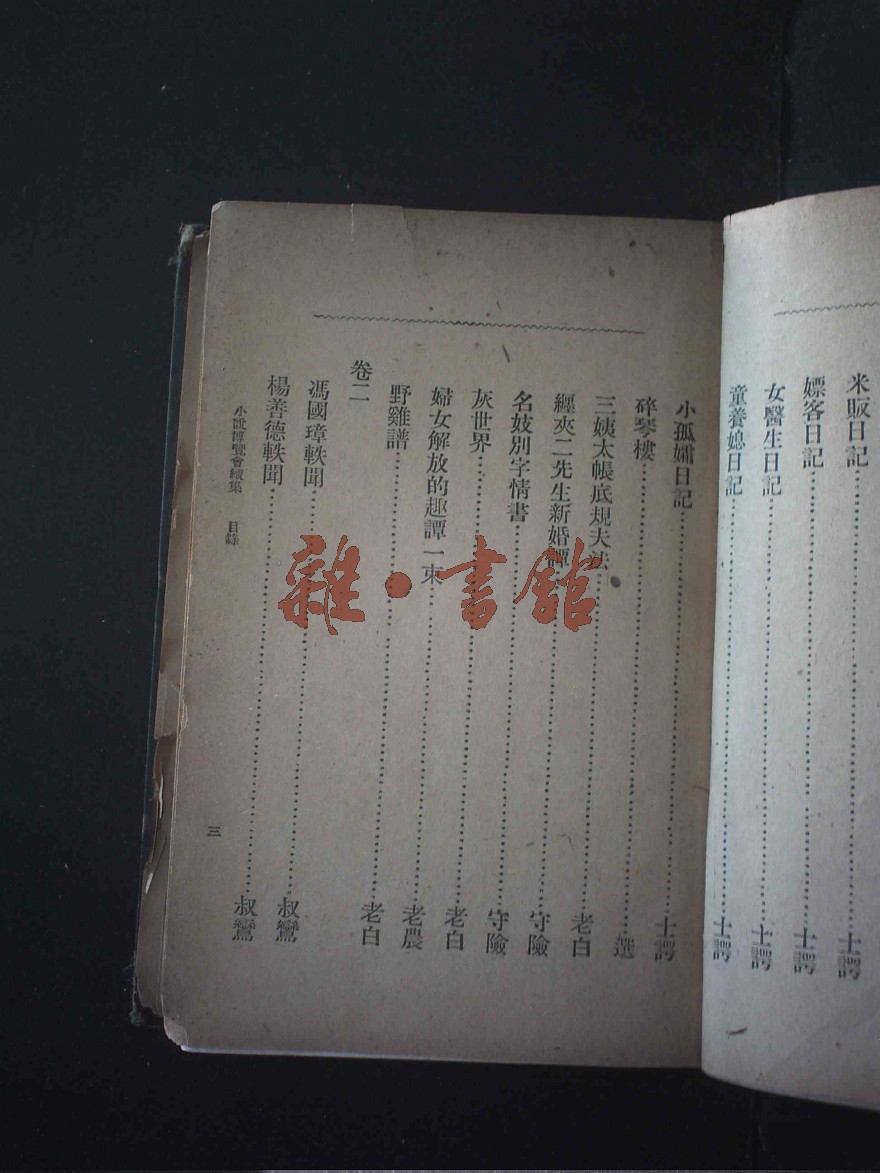 米販日記……土諤
嫖客日記……士諤
女醫生日記……士諤
童養媳日記……士諤
小孤孀日記……士諤
碎琴樓……選
三姨太帳底規夫法……老白
纒夾二先生新婚譚……守險
名妓別字情書……守險
灰世界……老白
婦女解放的趣譚一束……老農
野雞譜……老白
卷二
馮國璋軼聞……叔鸞
楊善德軼聞……叔鸞
小說博覽會續集 目錄
三
雜·書館